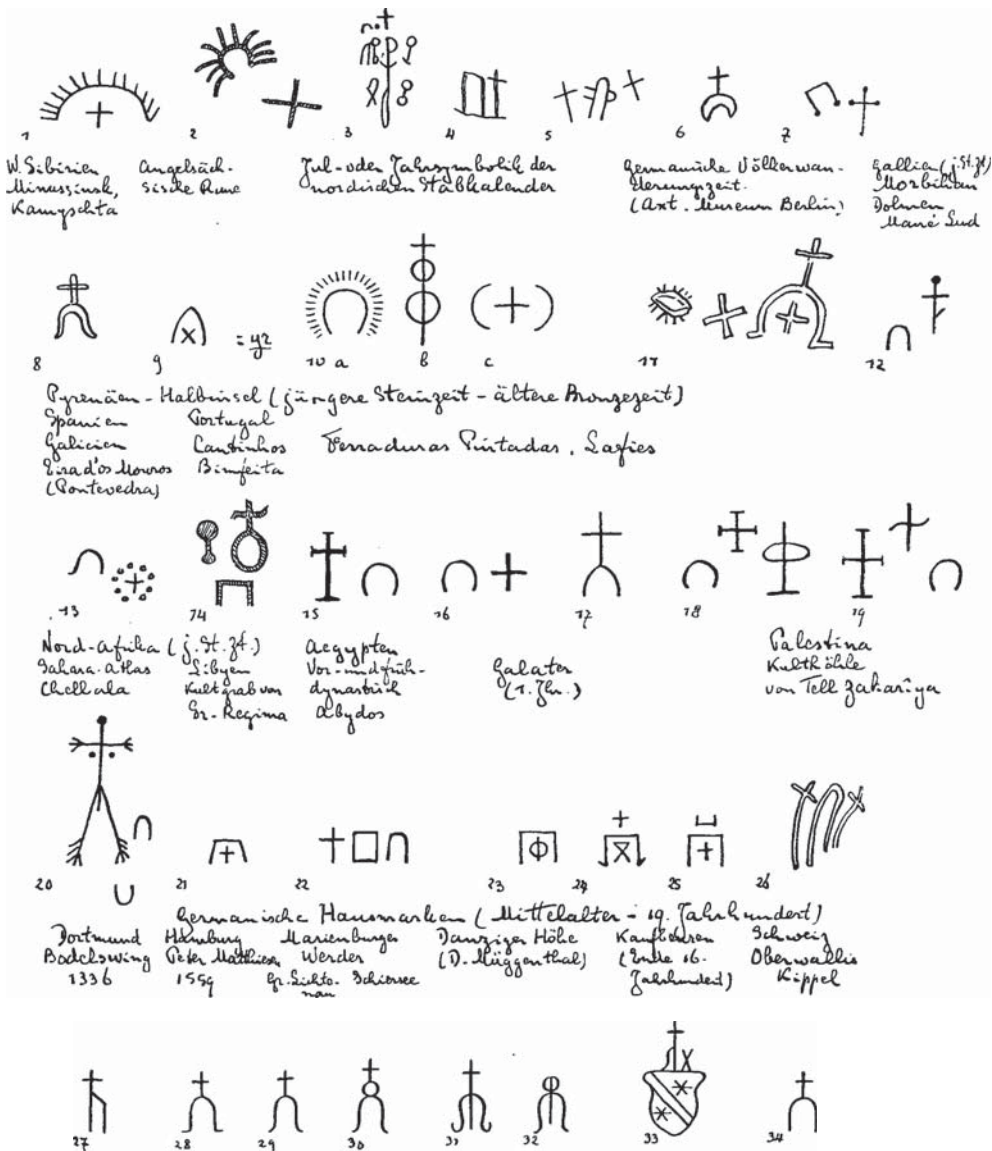 1 2 3 4 5 6 7
W. Sibirien
Minussinsk,
Kamyschta
Angelsäch-
sische Rune
Jul- oder Jahrsymbolik der
nordischen Stabkalender
Germanische Völkerwan-
derungzeit.
(Axt. Museum Berlin)
Gallien (j. St. zt)
Morbihan
Dolmen
Mané Lud
8 9 10 a b c 11 12
Pyrenäen-Halbinsel (jüngere Steinzeit - ältere Bronzezeit)
Spanien
Galicien
Eirad'os Mouros
(Pontevedra)
Portugal
Cantinhos
Bimfeita
Ferraduras Pintadas, Lafies
13 14 15 16 17 18 19
Nord-Afrika (j. St. zt.)
Sahara-Atlas
Chellala
Libyen
Kultgrab von
Er-Regima
Aegypten
Vor- und früh-
dynastisch
Abydos
Galater
(1. Jhr.)
Palestina
Kulthöhle
von Tell Zakarîya
20 21 22 23 24 25 26
Germanische Hausmarken (Mittelalter - 19. Jahrhundert)
Dortmund
Bodelswing
1336
Hamburg
Peter Matthiesen
1559
Marienburger
Werder
Gr. Lichte-
nau
Schönsee
Danziger Höhe
(D. Müggenthal)
Kaufbeuren
(Ende 16.
Jahrhundert)
Schweiz
Oberwallis
Kippel
27 28 29 30 31 32 33 34